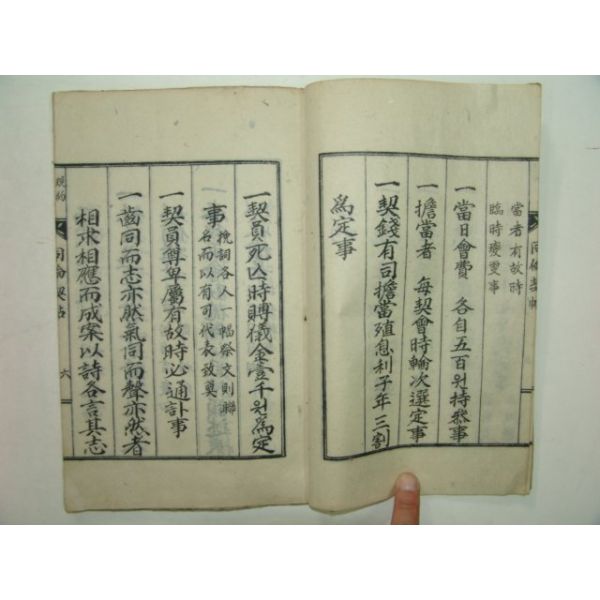 當者有故時
臨時變更事
一 當日會費 各自五百원持參事
一 擔當者 每契會時輪次選定事
一 契錢有司擔當殖息利子年三割
爲定事
一 契員死亡時賻儀金壹千원爲定
事 挽詞各人一幅祭文則聯
名而以有司代表致奠
一 契員尊卑屬有故時必通訃事
一 齒同而志亦然氣同而聲亦然者
相求相應而成案以詩各言其志
規約
同 契帖
六